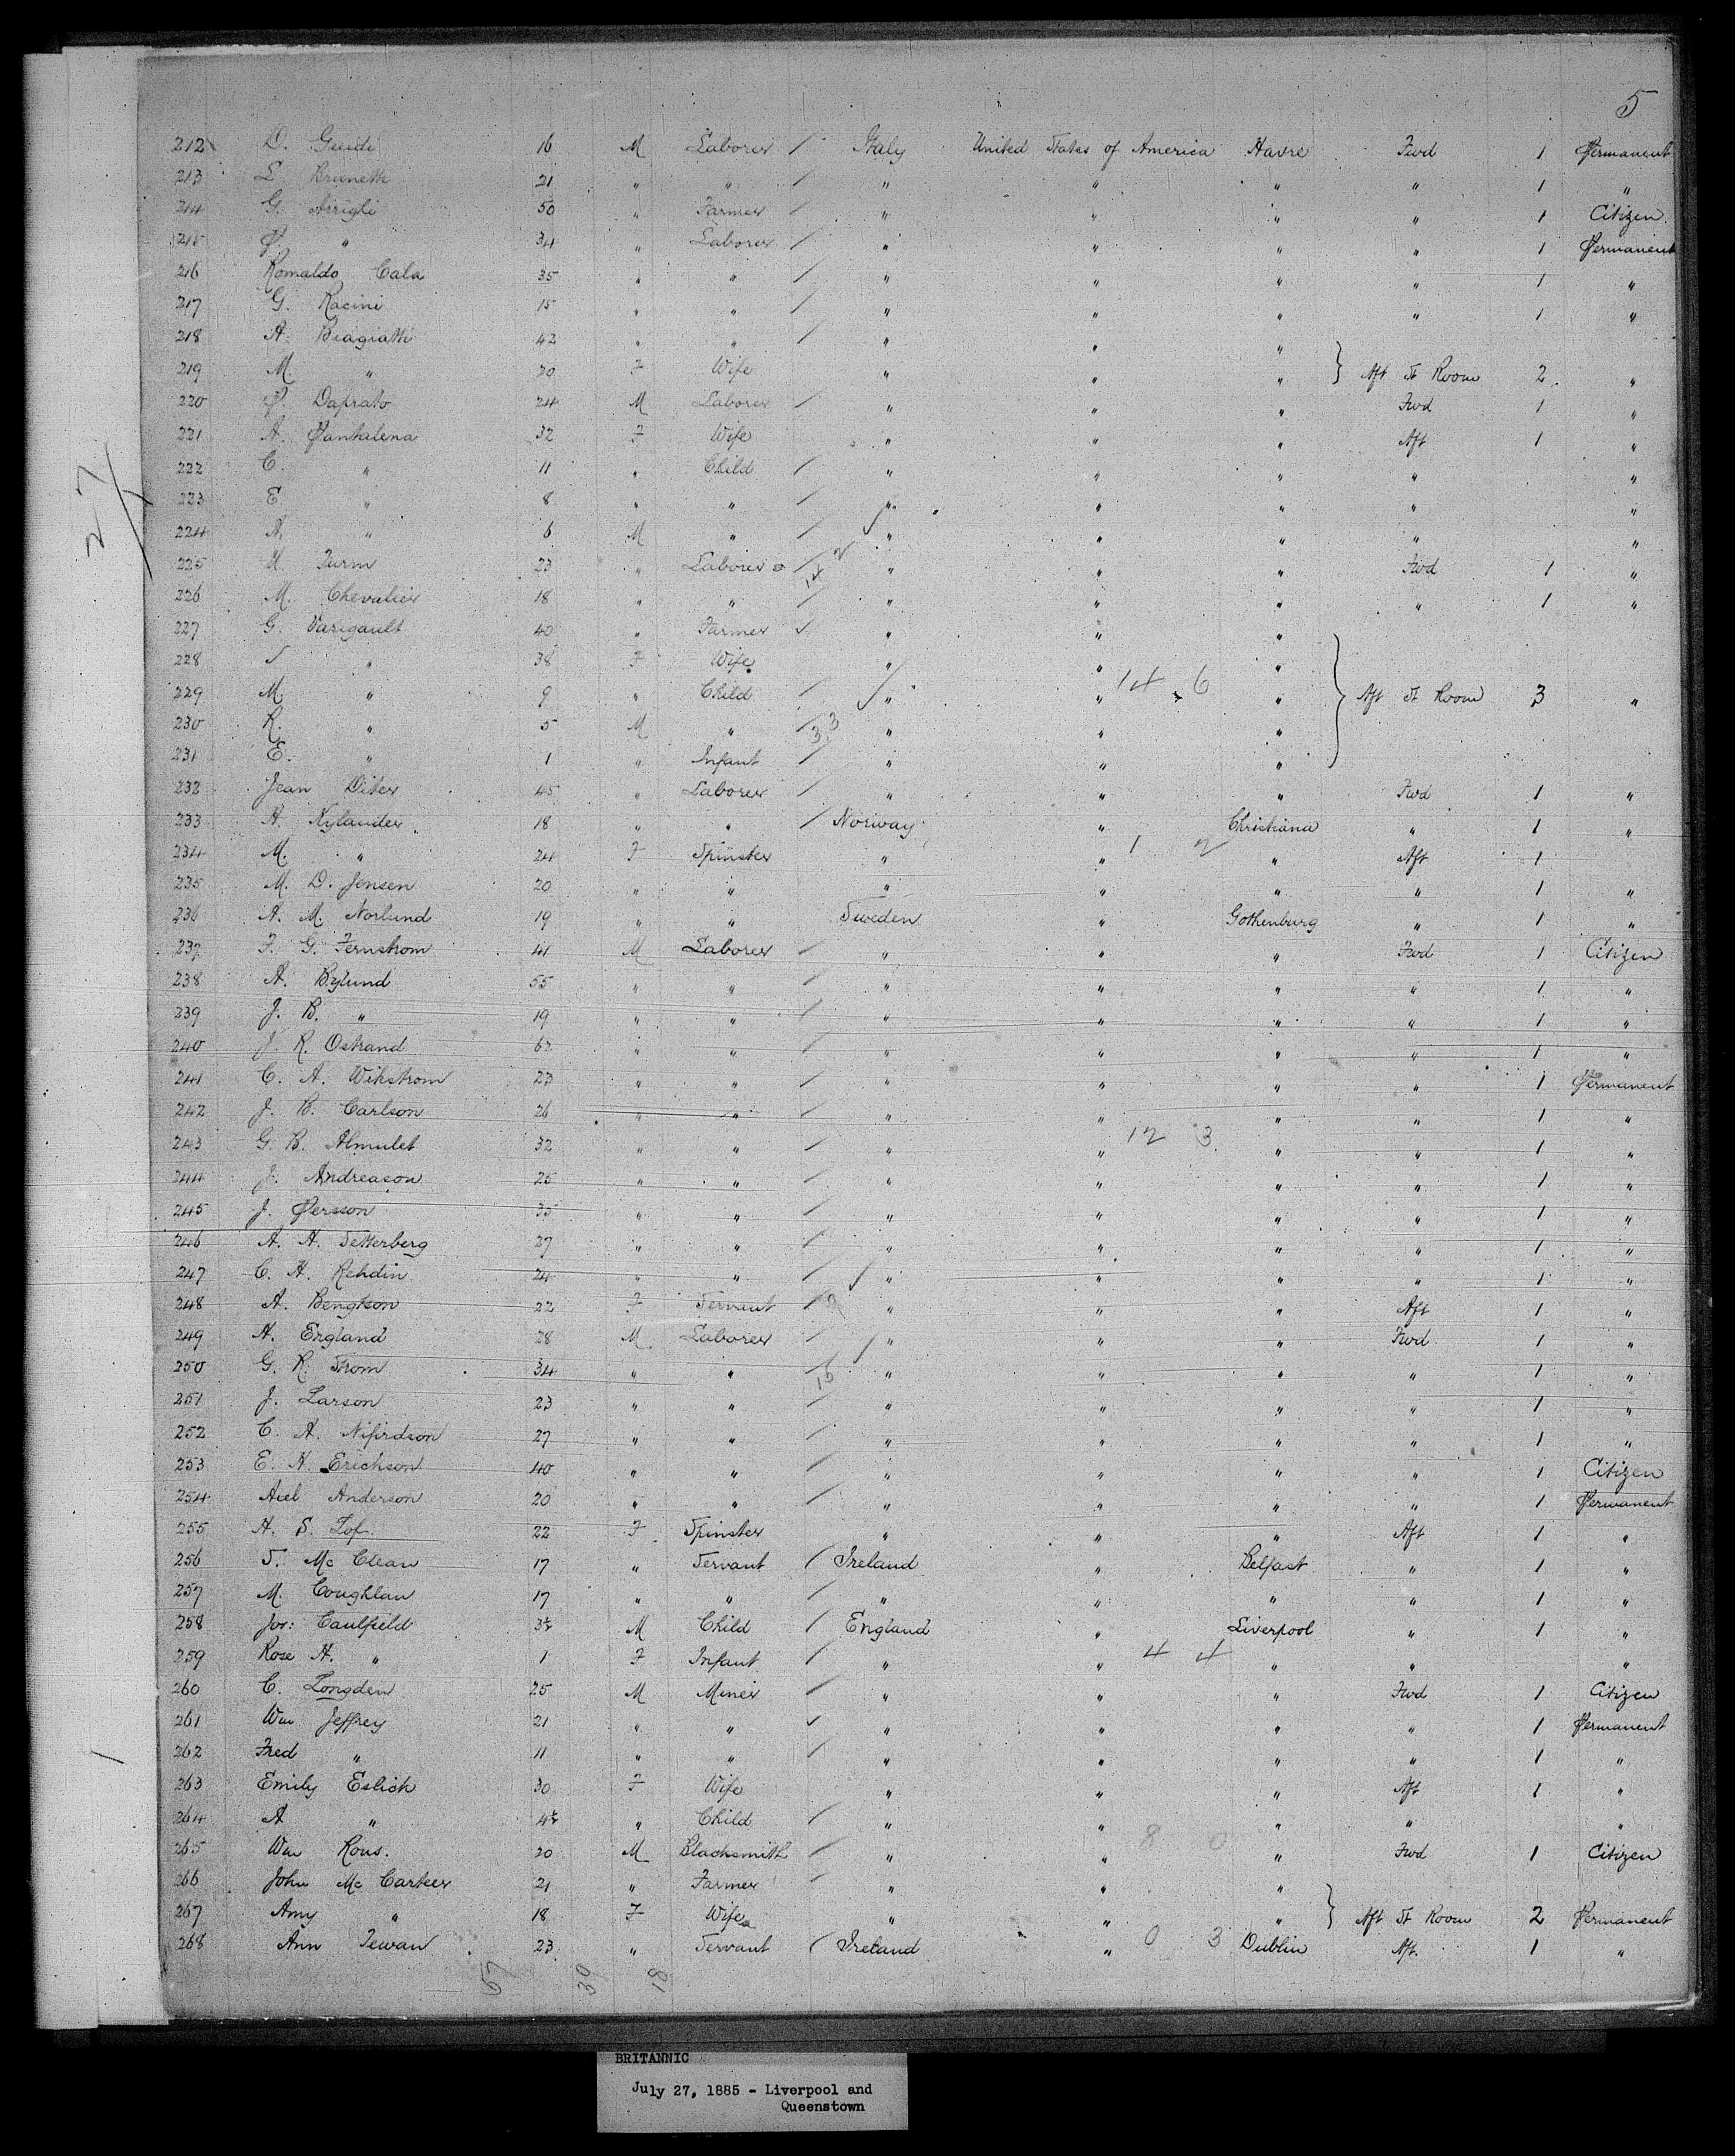 5
212 D. Guidi 16 M Laborer / Italy United States of America Havre Fwd 1 Permanent
213 L. Brunetti 21 " " / " " " " 1 "
214 G. Arrighi 50 " Farmer / " " " " 1 Citizen
215 P. " 34 " Laborer / " " " " 1 Permanent
216 Romaldo Cala 35 " " / " " " " 1 "
217 G. Racini 15 " " / " " " " 1 "
218 A. Biagiatti 42 " " / " " "
219 M. " 20 F Wife " " " } Aft St Room 2 "
220 P. Daprato 24 M Laborer / " " " Fwd 1 "
221 A. Pantalena 32 F Wife " " " Aft 1 "
222 C. " 11 " Child / " " " " "
223 E " 8 " " / " " " " "
224 A. " 6 M " / " " " " "
225 U. Turm 23 " Laborer / 14 2 " " " Fwd 1 "
226 M. Chevalier 18 " " / " " " " 1 "
227 G. Varigault 40 " Farmer / " " "
228 J " 38 F Wife " " "
229 M. " 9 " Child / " " 14 6 " } Aft St Room 3 "
230 R. " 5 M " / 3.3 " " "
231 E. " 1 " Infant / " " "
232 Jean Diter 45 " Laborer / " " " Fwd 1 "
233 A. Nylander 18 " " / Norway " Christiana " 1 "
234 M. " 24 F Spinster " " 1 2 " Aft 1
235 M. D. Jensen 20 " " " " " " 1 "
236 A. M. Norlund 19 " " Sweden " Gothenburg " 1 "
237 F. G. Fernstrom 41 M Laborer / " " " Fwd 1 Citizen
238 A. Bylund 55 " " / " " " " 1 "
239 J. B. " 19 " " / " " " " 1 "
240 J. R. Ostrand 62 " " / " " " " 1 "
241 C. A. Wikstrom 23 " " / " " " " 1 Permanent
242 J. B. Carlson 26 " " / " " " " 1 "
243 G. B. Almulet 32 " " / " " 12 3 " " 1 "
244 J. Andreason 25 " " / " " " " 1 "
245 J. Persson 35 " " / " " " " 1 "
246 A. A. Setterberg 27 " " / " " " " 1 "
247 C. H. Rehdin 24 " " / " " " " 1 "
248 A. Bengtson 22 F Servant / " " " Aft 1 "
249 A. England 28 M Laborer / " " " Fwd 1 "
250 G. R. Strom 34 " " / 16 " " " " 1 "
251 J. Larson 23 " " / " " " " 1 "
252 C. A. Nifirdson 27 " " / " " " " 1 "
253 E. H. Erichson 40 " " / " " " " 1 Citizen
254 Axel Anderson 20 " " / " " " " 1 Permanent
255 H. S. Lof 22 F Spinster " " " Aft 1 "
256 S. Mc Clean 17 " Servant / Ireland " Belfast " 1 "
257 M. Coughlan 17 " " / " " " " 1 "
258 Jos: Caulfield 3½ M Child / England " Liverpool " 1 "
259 Rose H. " 1 F Infant / " " 4 4 " " "
260 C. Longden 25 M Miner / " " " Fwd 1 Citizen
261 Wm Jeffrey 21 " " / " " " " 1 Permanent
262 Fred " 11 " " / " " " " 1 "
263 Emily Eslick 30 F Wife " " " Aft 1 "
264 A " 4½ " Child / " " " " "
265 Wm Rous. 20 M Blacksmith / " " 8 0 " Fwd 1 Citizen
266 John Mc Carteer 21 " Farmer / " " "
267 Amy " 18 F Wife " " " } Aft St Room 2 Permanent
268 Ann Tewan 23 " Servant / Ireland " 0 3 Dublin Aft. 1 "
57 30 18
27
1
BRITANNIC
July 27, 1885 - Liverpool and
Queenstown